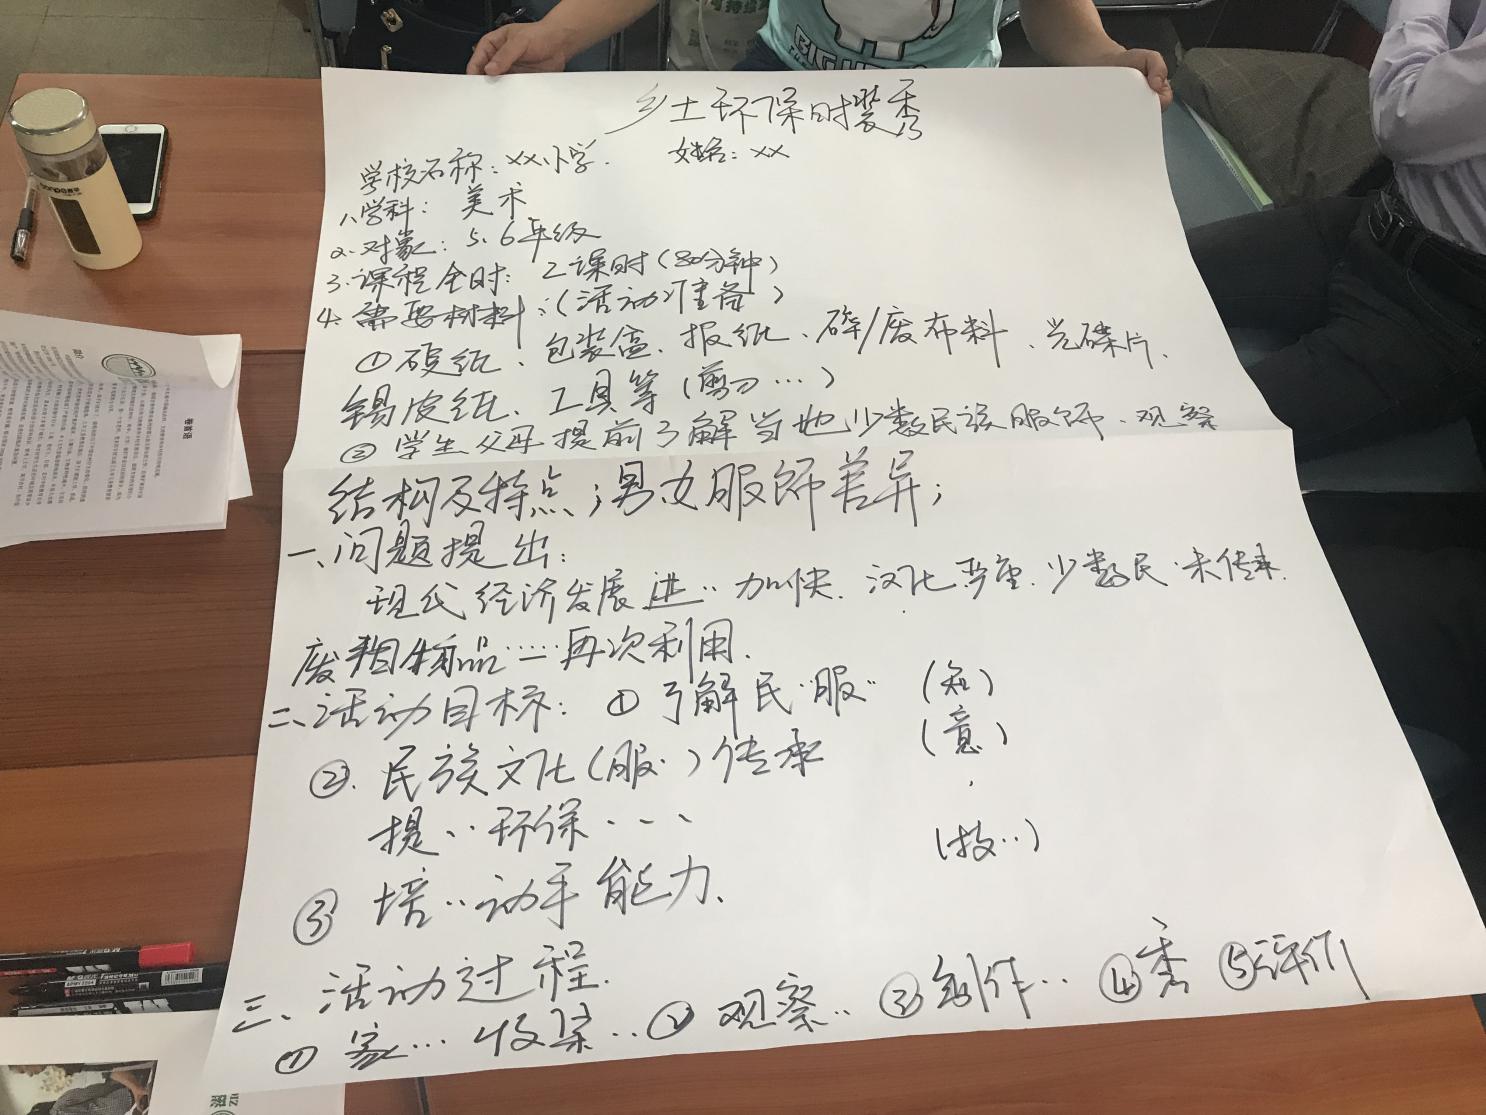 乡土环保时装秀
学校名称：XX小学. 姓名：XX
1、学科： 美术
2、对象：5、6年级
3.课程全时： 2课时（80分钟）
4、需要材料：（活动准备）
①硬纸、包装盒、报纸、碎/废布料、光碟片、
锡皮纸、工具等（剪刀…）
②学生父母提前了解当地少数民族服饰、观察
结构及特点；男女服饰差异；
一、问题提出：
现代经济发展进‥加快.汉化严重.少数民·未传承.
废 物品……再次利用.
二、活动目标：①了解民‥服‥（知）
②.民族文化（服·）传承 （意）
提‥环保··· 
③ 培‥动手能力. （技‥）
三、活动过程.
①家…收集‥②观察‥③创作‥④秀⑤评价
BIG